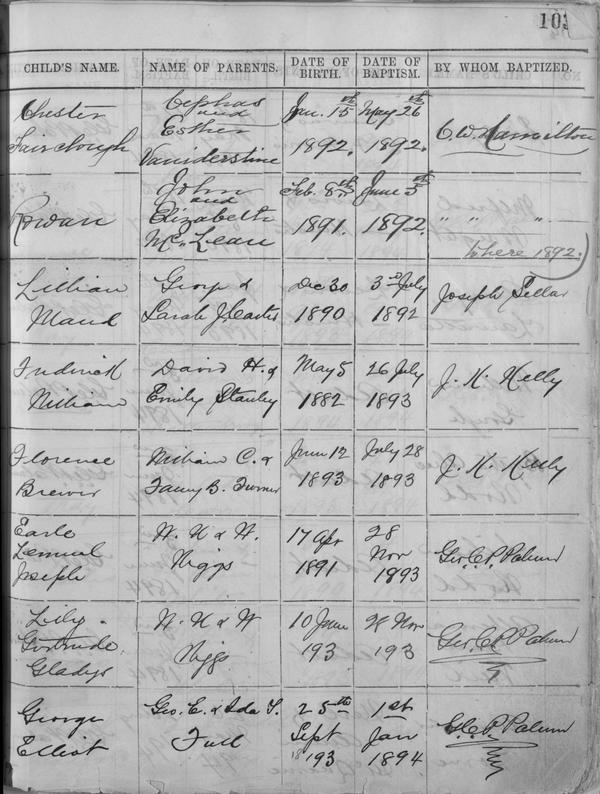 103
CHILD'S NAME. NAME OF PARENTS. DATE OF BIRTH. DATE OF BAPTISM. BY WHOM BAPTIZED.
Chester Fairclough Cephas and Esther Vaniderstine Jan. 15th 1892. May 26th 1892. C. W. Hamilton
Rowan John and Elizabeth McLean Feb. 8th 1891. June 5th 1892. " " "
where 1892.
Lillian Maud George & Sarah J. Carter Dec 30 1890 3rd July 1892 Joseph Sellar
Frederick William David H. & Emily Stanley May 5 1882 26 July 1893 J. K. Kelly
Florence Brewer William C. & Fanny B. Turner June 12 1893 July 28 1893 J. K. Kelly
Earle Lemuel Joseph W. H & W. Higgs 17 Apr 1891 28 Nov 1893 Geo. C. P. Palmer
Lily Gertrude Gladys W. H & W Higgs 10 June 193 28 Nov 193 Geo. C. P. Palmer
George Elliot Geo. E. & Ida S. Full 25th Sept 18193 1st Jan 1894 G. C. P. Palmer